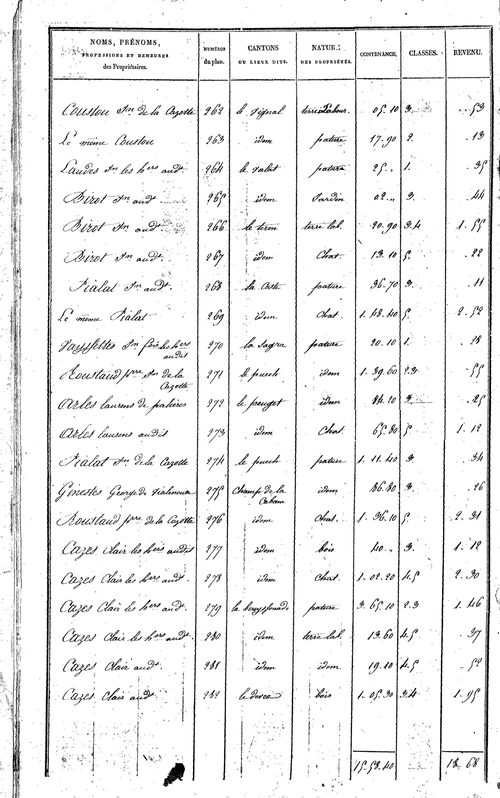 NOMS, PRÉNOMS, PROFESSIONS ET DEMEURES des Propriétaires. | NUMÉROS du plan. | CANTONS OU LIEUX DITS. | NATURE DES PROPRIÉTÉS. | CONTENANCE. | CLASSES. | REVENU.
Coustou Jn de la Cazotte 262 le signal terre Labour. 05.10 3. .. 53
Le même Coustou 263 idem pature 17.90 2. .. 13
Landes Jn les hers audt 264 le valat pature 25.. 1. .. 35
Birot Jn audt 265 idem Jardin 02.. 3. .. 44
Birot Jn audt 266 le terme terre lab. 20.90 3.4 1.55
Birot Jn audt 267 idem Chat. 13.10 5. .. 22
Fialat Jn audt 268 la coste pature 36.70 3. .. 11
Le même Fialat 269 idem Chat. 1.48.40 5. 2.52
Jn les hers audit 270 la sagra pature 20.10 1. .. 28
Roustand pre Jn de la Cazotte 271 le puech idem 1.39.60 2.3 .. 55
Arles laurens de 272 le idem 84.20 3. .. 25
Arles laurens audit 273 idem Chat. 65.80 5. 1.12
Fialat Jn de la Cazotte 274 le puech pature 1.11.40 3. .. 34
Ginestes George de 275 Champ de la Cabane idem 86.80 3. .. 26
Roustand pre de la Cazotte 276 idem Chat. 1.36.10 5. 2.31
Cazes Clair les hers audit 277 idem bois 40.. 3. 1.12
Cazes Clair les hers audt 278 idem Chat. 1.02.20 4.5 2.30
Cazes Clair les hers audt 279 la pature 3.65.10 2.3 1.46
Cazes Clair les hers audt 280 idem terre lab. 13.60 4.5 .. 37
Cazes Clair audt 281 idem idem 19.10 4.5 .. 52
Cazes Clair audt 282 bois 1.05.30 3.4 1.95
15.53.40 18.68